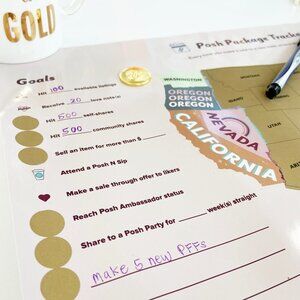 GOLD
Posh Package Tracke
Goals
Hit 100 available listings
Receive 20 love note(s)
Hit 500 self-shares
Hit 500 community shares
Sell an item for more than $
Attend a Posh N Sip
Make a sale through offer to likers
Reach Posh Ambassador status
Share to a Posh Party for ____ week(s) straight
make 5 new PFFs
WASHINGTON
OREGON
OREGON
OREGON
NEVADA
CALIFORNIA
MONTANA
IDAHO
WYOMING
UTAH
ARIZONA